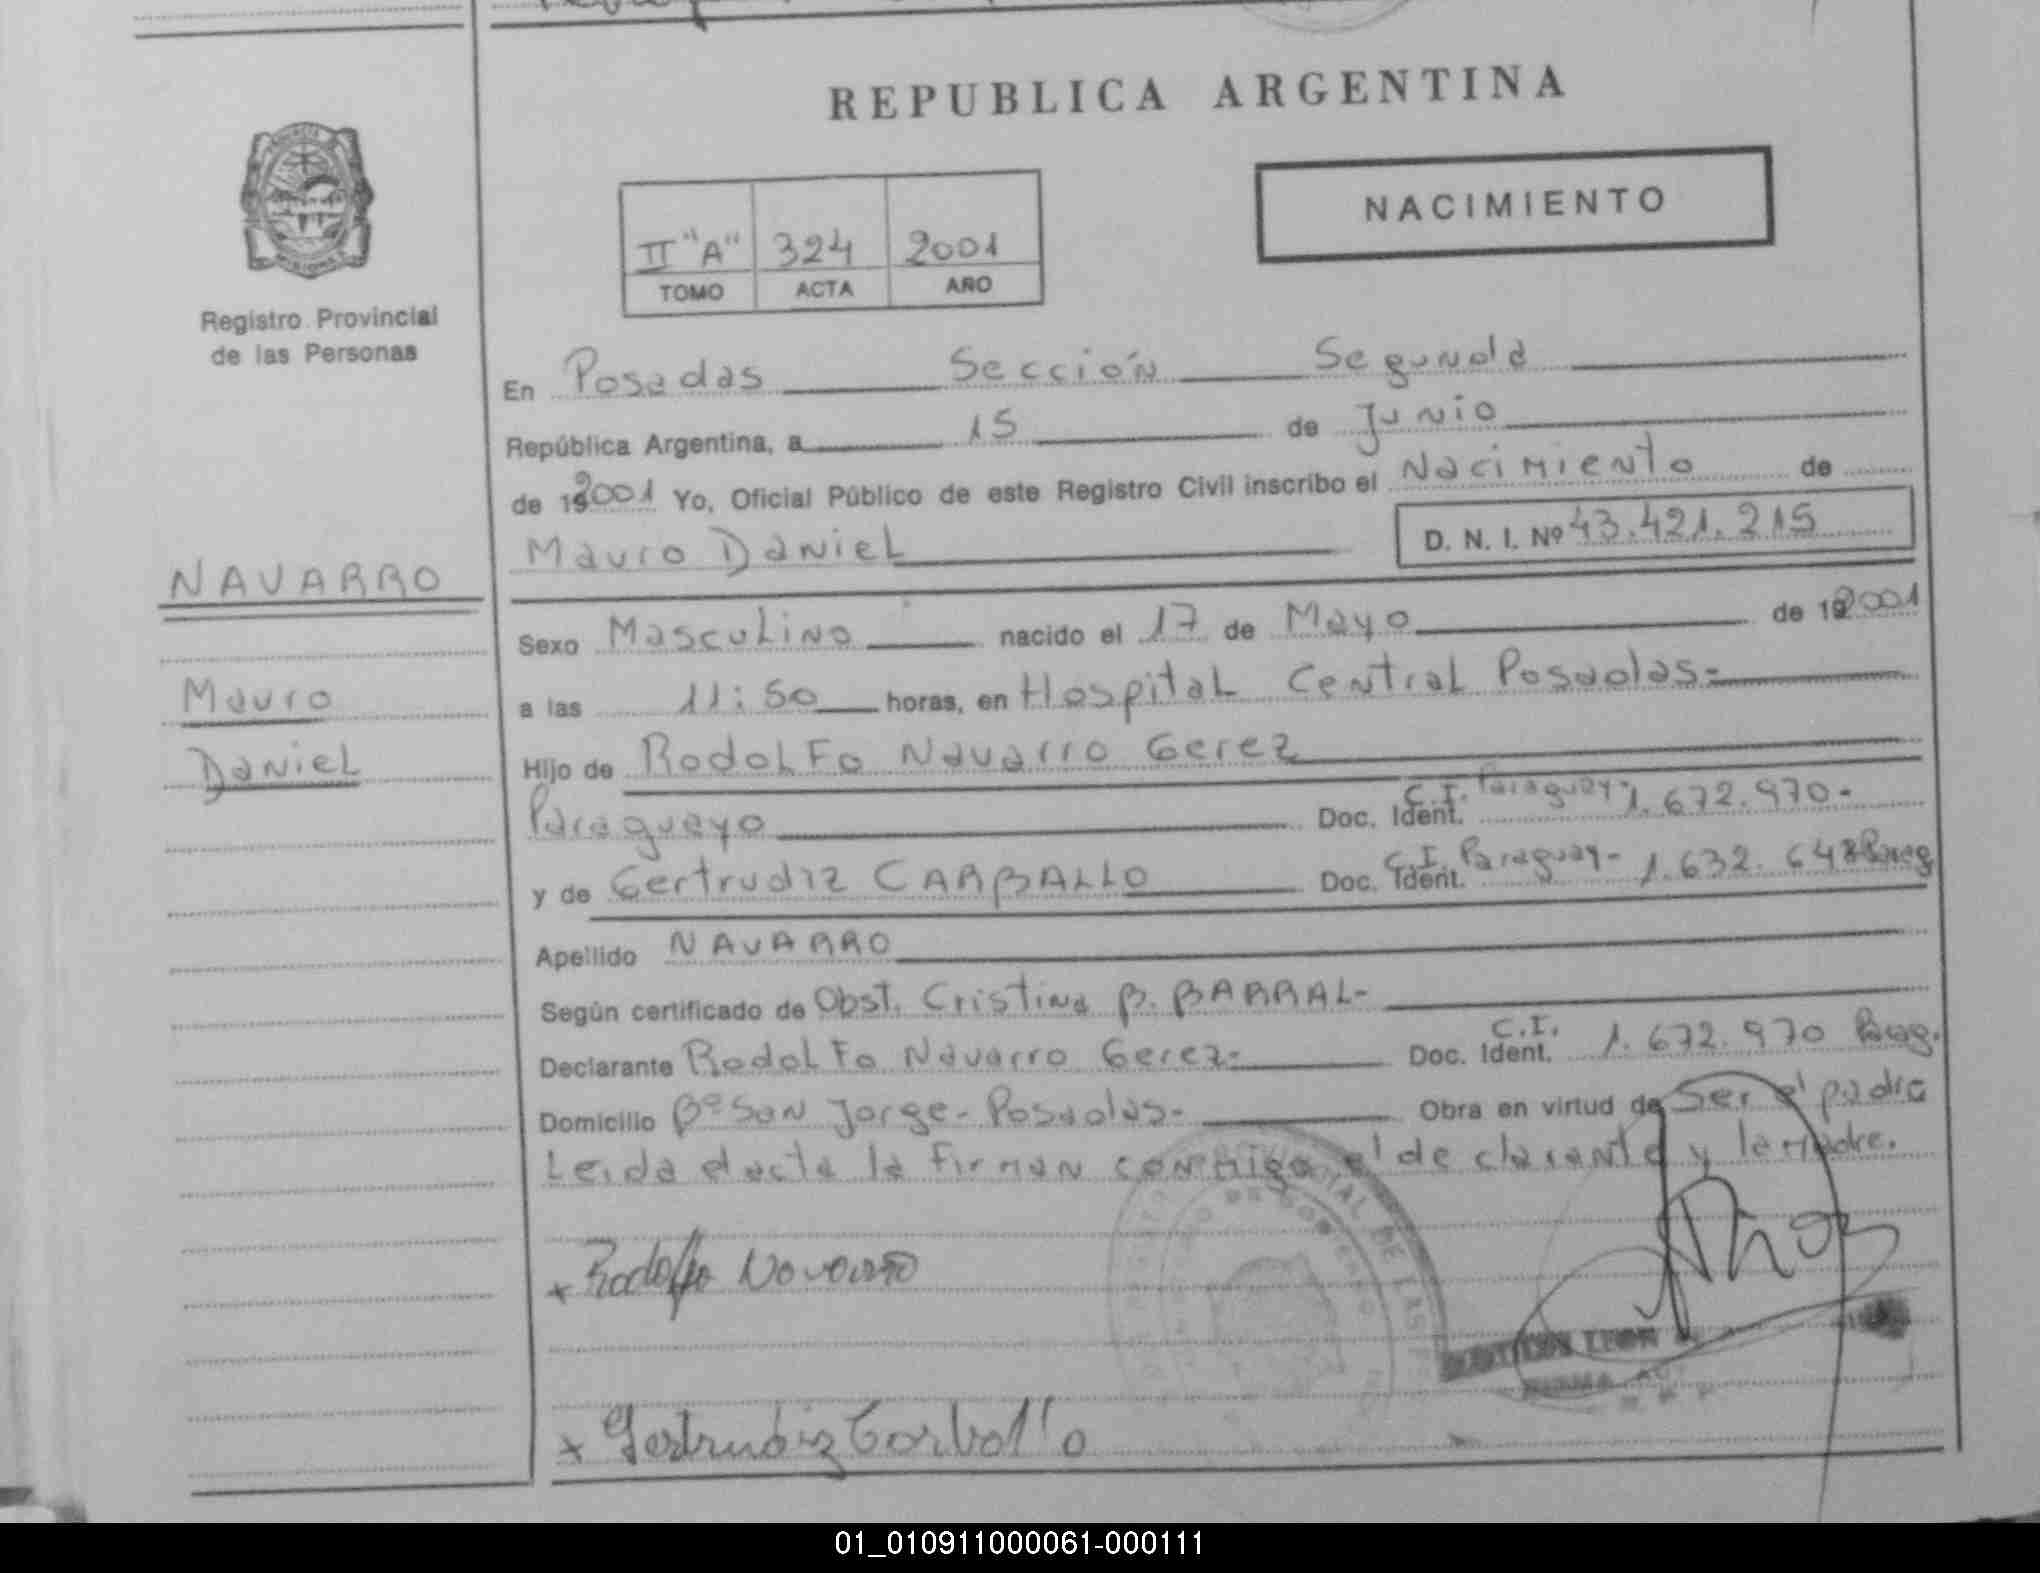 REPUBLICA ARGENTINA
NACIMIENTO
II "A" 324 2001
TOMO ACTA AÑO
Registro Provincial
de las Personas
En Posadas Sección Segunda
República Argentina, a 15 de Junio
de 192001 Yo, Oficial Público de este Registro Civil inscribo el Nacimiento de
Mauro Daniel D. N. I. Nº 43.421.215
NAVARRO
Mauro
Daniel
Sexo Masculino nacido el 17 de Mayo de 192001
a las 11:50 horas, en Hospital Central Posadas-
Hijo de Rodolfo Navarro Gerez
Paraguayo Doc. Ident. C.I. Paraguay- 1.672.970-
y de Gertrudiz CARBALLO Doc. Ident. C.I. Paraguay- 1.632.648 Parag
Apellido NAVARRO
Según certificado de Obst. Cristina B. BARRAL-
Declarante Rodolfo Navarro Gerez- Doc. Ident. C.I. 1.672.970 Parag.
Domicilio Bº San Jorge- Posadas- Obra en virtud de ser el padre
Leida el acta la firman conmigo el declarante y la Madre.
x Rodolfo Navarro
x Gertrudiz Carballo
01_010911000061-000111